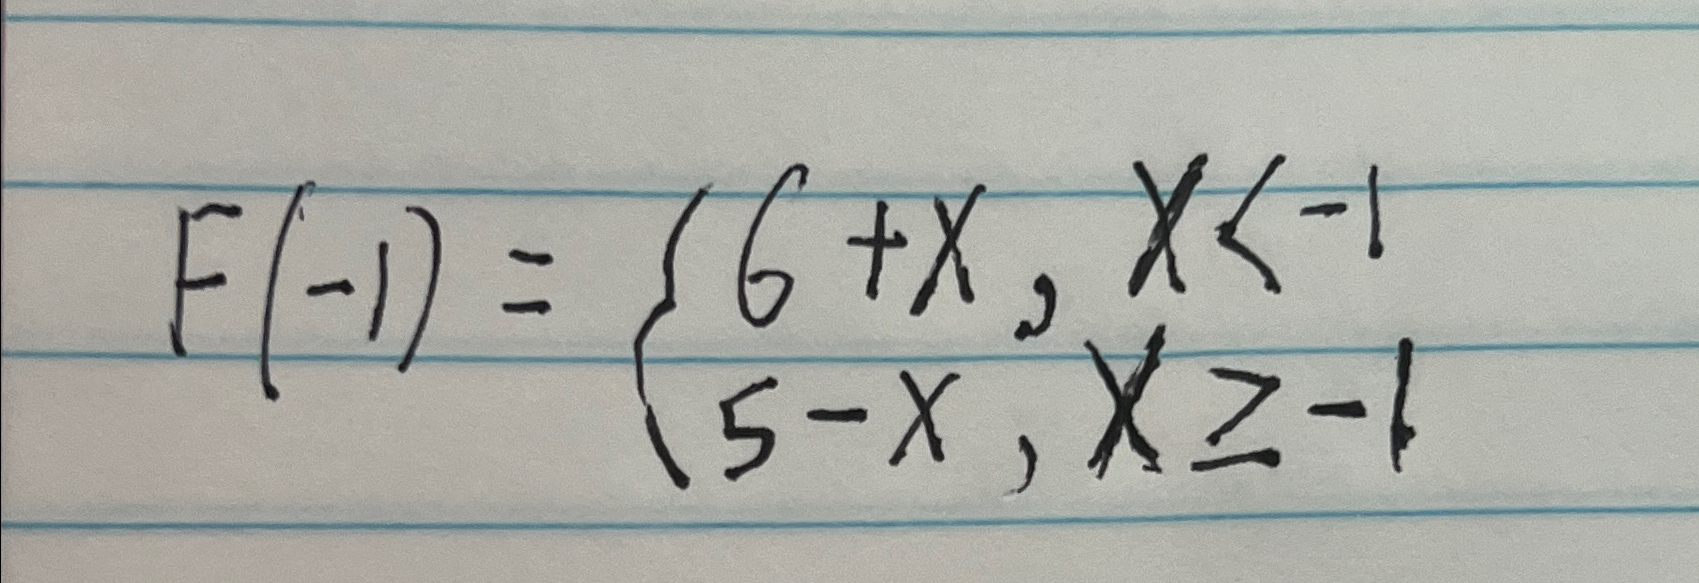 F(-1) = { 6+X, X<-1
5-X, X≥-1